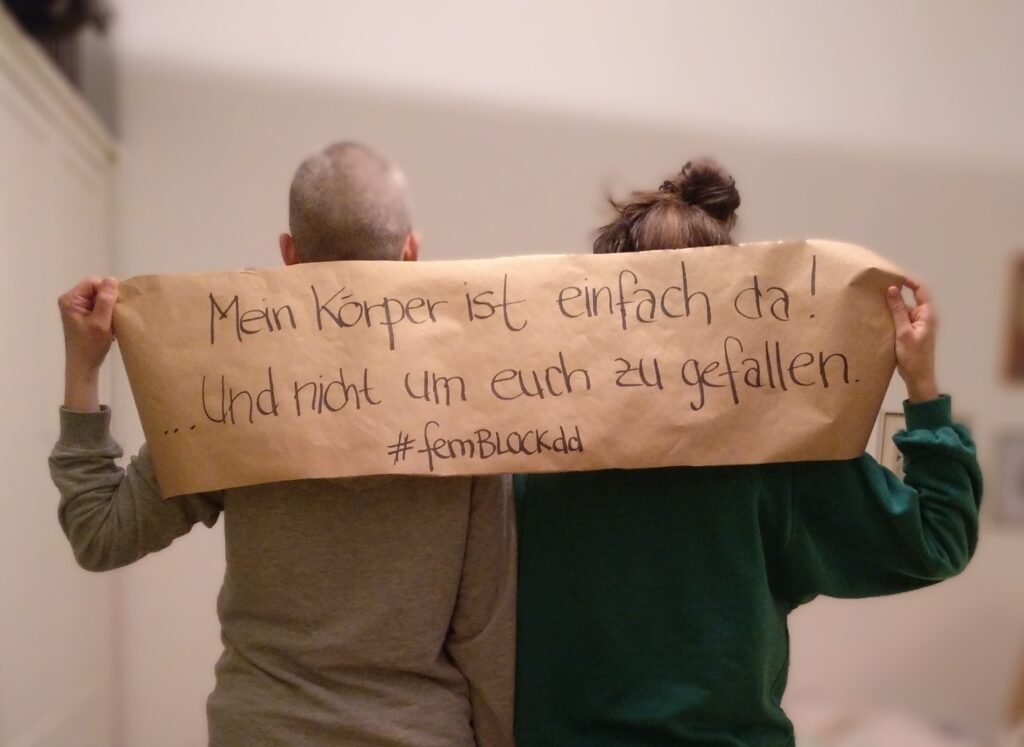 Mein Körper ist einfach da!
...Und nicht um euch zu gefallen.
#femBLOCKdd